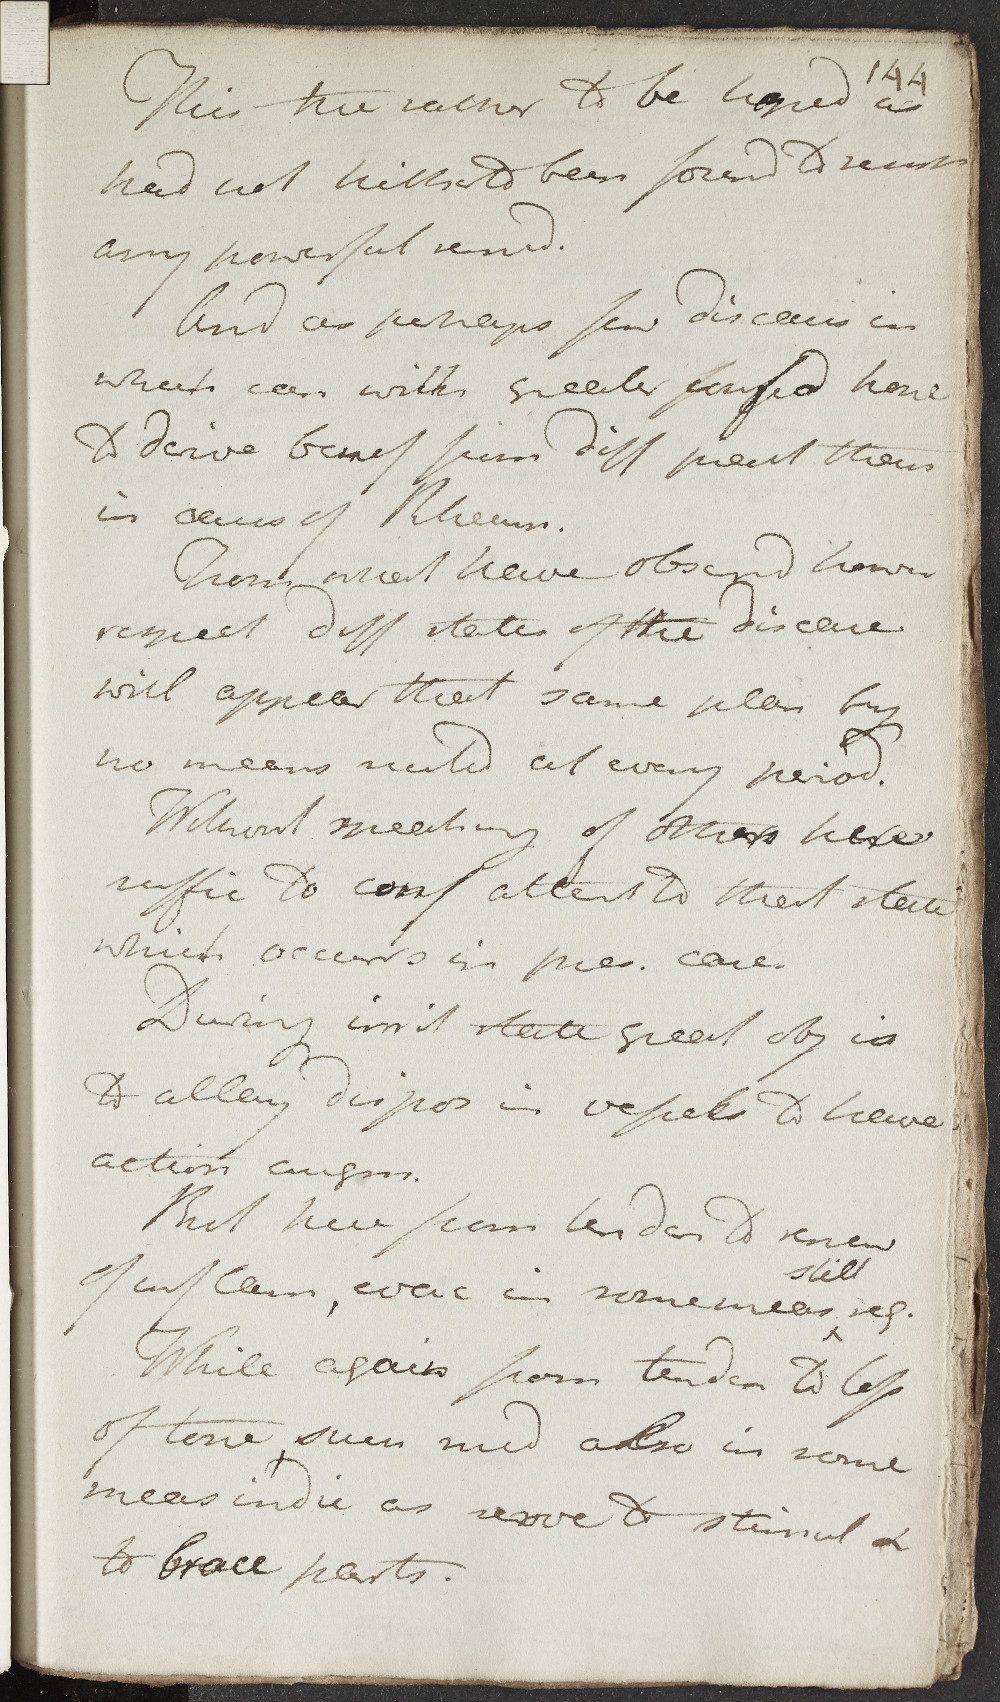 144
This the rather to be hoped as
had not hitherto been found to resist
any powerful remed.
And as perhaps few diseases in
which can with greater confid hope
to derive benef from diff meast than
in cases of Rheum.
From what have observd howev
respect diff states of the disease
will appear that same plan by
no means suited at every period.
Without speaking of others here
suffic to conf attent to that state
which occurs in pres. case
During init state great obj is
to allay dispos in vessels to have
action augm.
But here from tenden to renew
of inflam, evac in some meas still req.
While again from tenden to loss
of tone, such med also in some
meas indic as serve to stimul &
to brace parts.